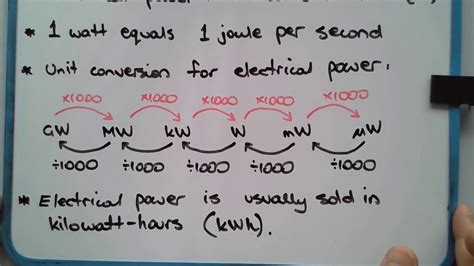 * 1 watt equals 1 joule per second
* Unit conversion for electrical power:
×1000 ×1000 ×1000 ×1000 ×1000
GW MW kW W mW µW
÷1000 ÷1000 ÷1000 ÷1000 ÷1000
* Electrical power is usually sold in
kilowatt-hours (kWh).